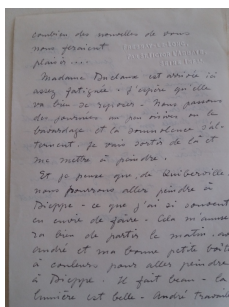 combien des nouvelles de vous
nous feraient
plaisir ....
Madame Duclaux est arrivée ici
assez fatiguée - j'espère qu'elle
va bien se reposer - Nous passons
des journées un peu où le
bavardage et la somnolence s'al-
ternent. Je vais sortir de là et
me mettre à peindre.
Et je pense que, de Quiberville
nous pourrons aller peindre à
Dieppe - ce que j'ai si souvent
eu envie de faire. Cela m'amuse
ra bien de partir le matin, avec
andré et ma bonne petite boîte
à couleurs pour aller peindre
à Dieppe. Il fait beau - la
lumière est belle - André